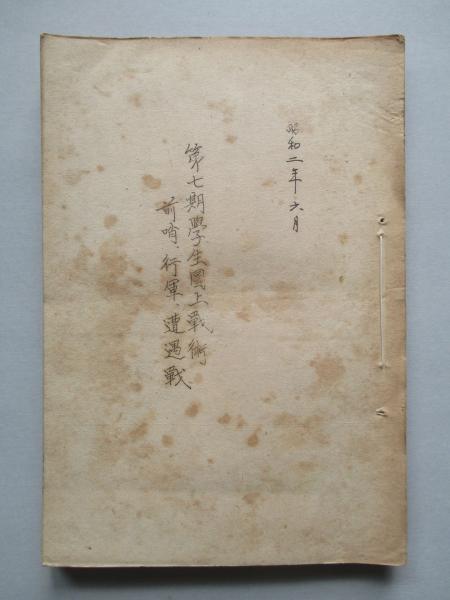 昭和二年六月
第七期學生圖上戰術
前哨、行軍、遭遇戰